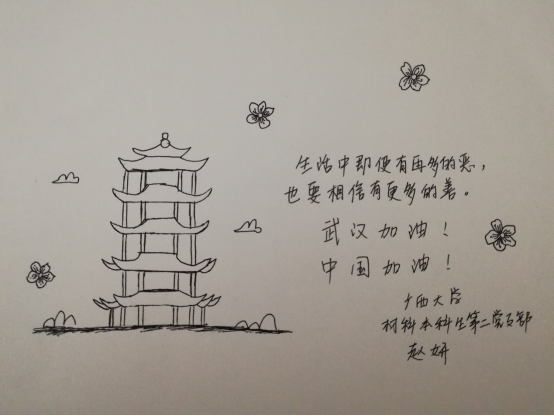 生活中即便有再多的恶，
也要相信有更多的善。
武汉加油！
中国加油！
广西大学
材料本科生第二党支部
赵妍